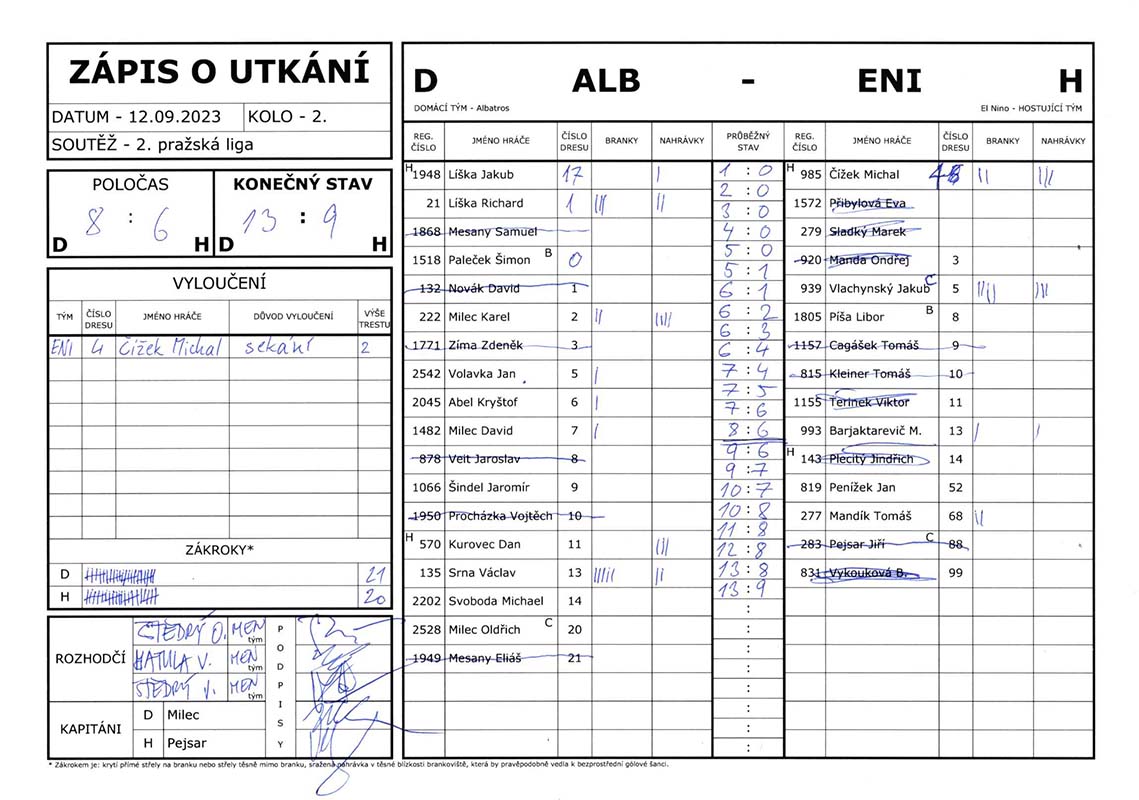 ZÁPIS O UTKÁNÍ
DATUM - 12.09.2023 KOLO - 2.
SOUTĚŽ - 2. pražská liga
POLOČAS KONEČNÝ STAV
8 : 6 13 : 9
D H D H
VYLOUČENÍ
TÝM ČÍSLO DRESU JMÉNO HRÁČE DŮVOD VYLOUČENÍ VÝŠE TRESTU
ENI 4 Čížek Michal sekání 2
ZÁKROKY*
D 21
H 20
ROZHODČÍ
ŠTEDRÝ O. MEN tým
MATULA V. MEN tým
ŠTEDRÝ V. MEN tým
PODPISY
KAPITÁNI
D Milec
H Pejsar
D ALB - ENI H
DOMÁCÍ TÝM - Albatros El Nino - HOSTUJÍCÍ TÝM
REG. ČÍSLO JMÉNO HRÁČE ČÍSLO DRESU BRANKY NAHRÁVKY PRŮBĚŽNÝ STAV REG. ČÍSLO JMÉNO HRÁČE ČÍSLO DRESU BRANKY NAHRÁVKY
H 1948 Líška Jakub 17 I
21 Líška Richard 1 III II
1868 Mesany Samuel
1518 Paleček Šimon B 0
132 Novák David 1
222 Milec Karel 2 II IIII
1771 Zíma Zdeněk 3
2542 Volavka Jan 5 I
2045 Abel Kryštof 6 I
1482 Milec David 7 I
878 Veit Jaroslav 8
1066 Šindel Jaromír 9
1950 Procházka Vojtěch 10
H 570 Kurovec Dan 11 III
135 Srna Václav 13 IIIII II
2202 Svoboda Michael 14
2528 Milec Oldřich C 20
1949 Mesany Eliáš 21
1 : 0
2 : 0
3 : 0
4 : 0
5 : 0
5 : 1
6 : 1
6 : 2
6 : 3
6 : 4
7 : 4
7 : 5
7 : 6
8 : 6
9 : 6
9 : 7
10 : 7
10 : 8
11 : 8
12 : 8
13 : 8
13 : 9
H 985 Čížek Michal 4 II III
1572 Přibylová Eva
279 Sladký Marek
920 Manda Ondřej 3
939 Vlachynský Jakub C 5 IIII III
1805 Píša Libor B 8
1157 Cagášek Tomáš 9
815 Kleiner Tomáš 10
1155 Terinek Viktor 11
993 Barjaktarevič M. 13 I I
H 143 Plecitý Jindřich 14
819 Penížek Jan 52
277 Mandík Tomáš 68 II
283 Pejsar Jiří C 88
831 Výkouková B. 99
* Zákrokem je: krytí přímé střely na branku nebo střely těsně mimo branku, sražená nahrávka v těsné blízkosti brankoviště, která by pravěpodobně vedla k bezprostřední gólové šanci.